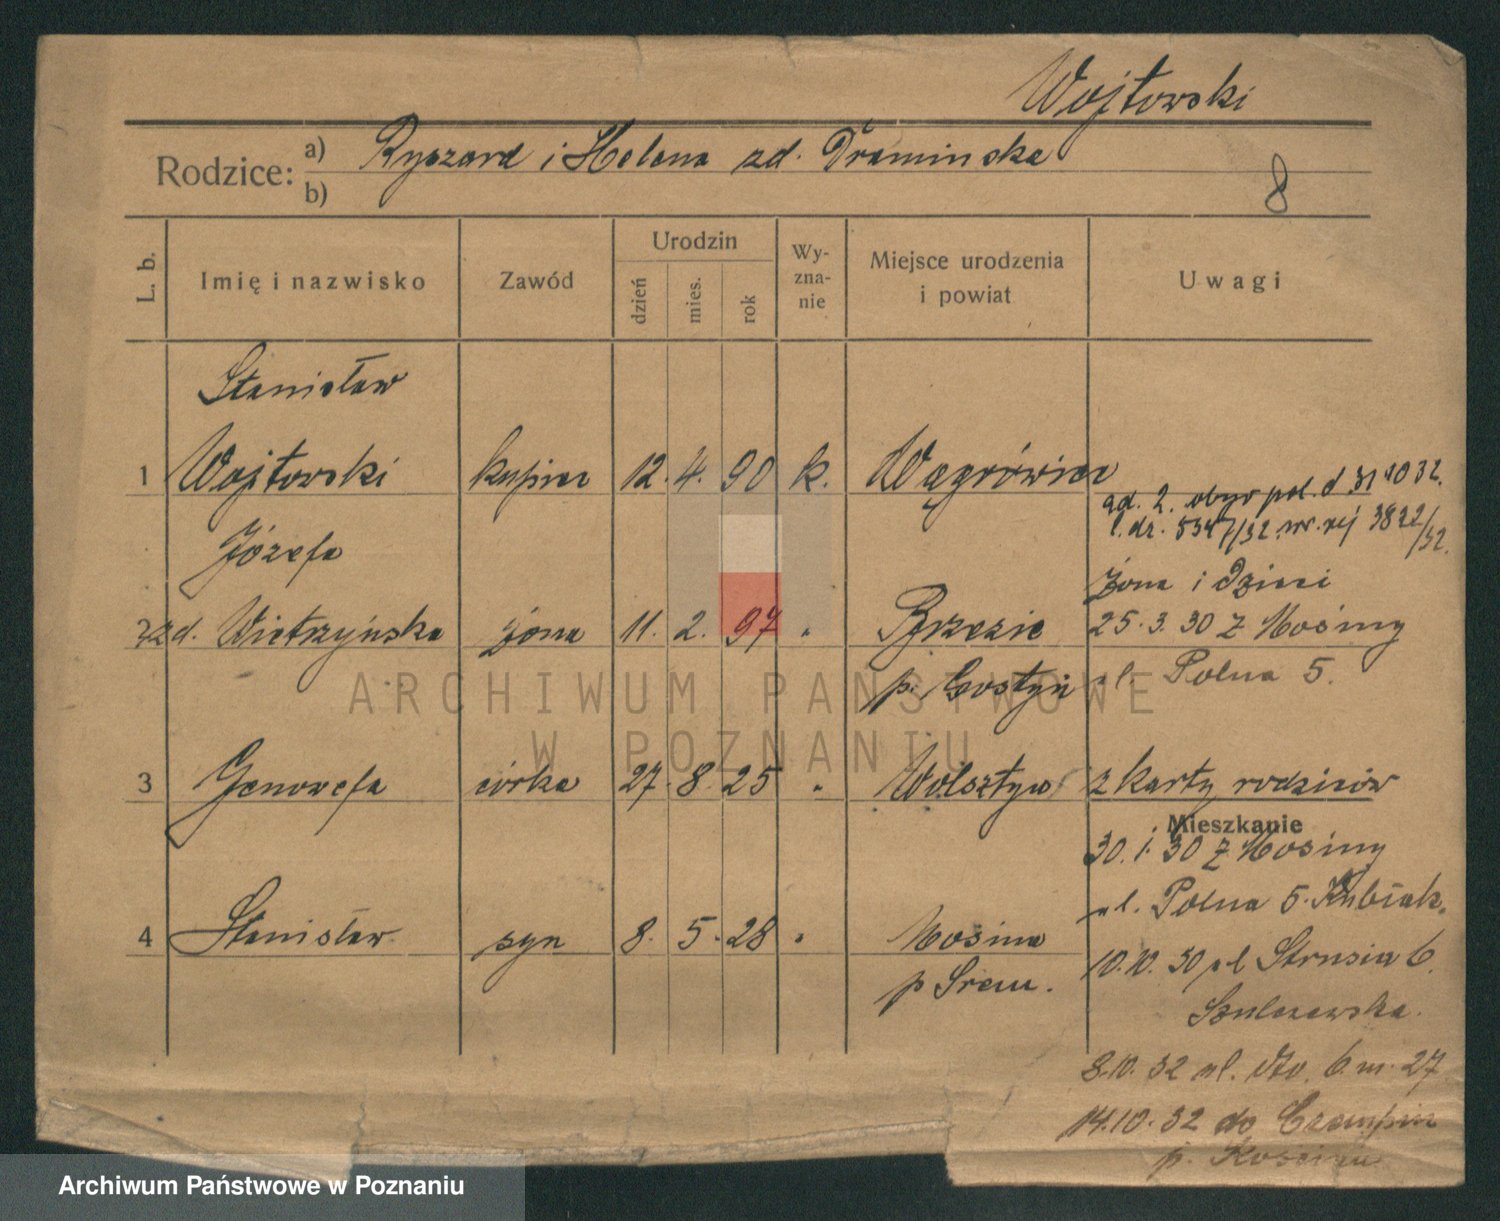 Wojtowski
Rodzice: a) Ryszard i Helena zd. Dramińska
b)
8
L. b. Imię i nazwisko Zawód Urodzin dzień mies. rok Wy-zna-nie Miejsce urodzenia i powiat Uwagi
Stanisław
1 Wojtowski kupiec 12. 4. 90 k. Wągrówiec
ad. 2. obyw pol. d 31 10 32.
l. dz. 5347/32 nr. rej 3822/32.
Józefa
żona i dzieci
2 zd. Wietrzyńska żona 11. 2. 97 " Brzezie 25. 3. 30 z Mosiny
p. Gostyń ul. Polna 5.
3 Genowefa córka 27. 8. 25 " Wolsztyn z karty rodziców
Mieszkanie
30. 1. 30 z Mosiny
ul. Polna 5. Kubiak.
4 Stanisław syn 8. 5. 28 " Mosina
10. 10. 30 ul Strusia 6.
p Śrem.
Szulczewska.
8.10. 32 ul. 6. m. 27
14.10. 32 do Czempiń
p. Kościan
ARCHIWUM PAŃSTWOWE
W POZNANIU
Archiwum Państwowe w Poznaniu